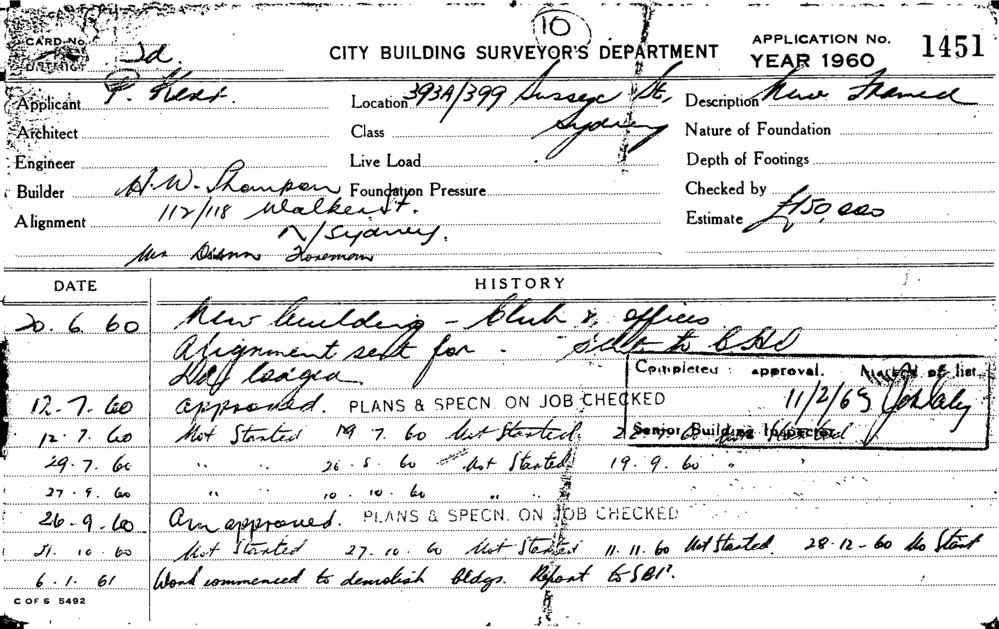 10
CARD No.
DISTRICT 2d.
CITY BUILDING SURVEYOR'S DEPARTMENT
APPLICATION No. 1451
YEAR 1960
Applicant P. Kerr. Location 393A/399 Sussex St, Description New Framed
Architect Class Sydney Nature of Foundation
Engineer Live Load Depth of Footings
Builder H.W. Thompson Foundation Pressure Checked by
Alignment 112/118 Walker St. Estimate £150,000
N/Sydney.
Mr Foreman
DATE HISTORY
20.6.60 New building - Club & offices
Alignment sent for.
lodged
Completed : approval. Marked off list.
12.7.60 approved. PLANS & SPECN. ON JOB CHECKED
11/2/63
Senior Building Inspector
12.7.60 Not Started 19 7.60 Not Started
29.7.60 " " 26.8.60 Not Started 19.9.60 "
27.9.60 " " 10.10.60 " "
26-9-60 Am approved. PLANS & SPECN. ON JOB CHECKED
21.10.60 Not Started 27.10.60 Not Started 11.11.60 Not Started 28-12-60 No Start
6.1.61 Work commenced to demolish bldgs. Report to SBI.
C OF S 5492